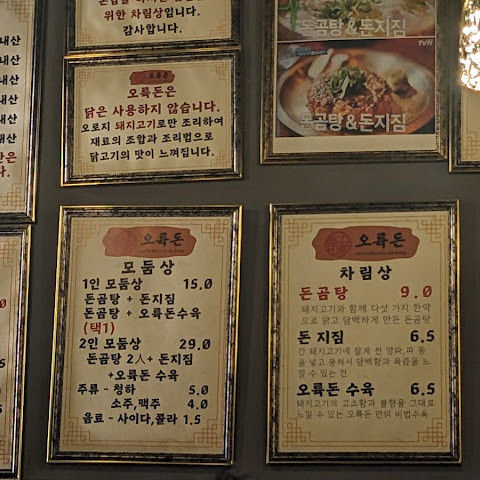 위한 차림상입니다.
감사합니다.
내산
내산
내산
내산
내산
오륙돈
오륙돈은
닭은 사용하지 않습니다.
오로지 돼지고기로만 조리하여
재료의 조합과 조리법으로
닭고기의 맛이 느껴집니다.
돈곰탕&돈지짐
tvN
돈곰탕&돈지짐
오륙돈
모둠상
1인 모둠상 15.0
돈곰탕 + 돈지짐
돈곰탕 + 오륙돈수육
(택1)
2인 모둠상 29.0
돈곰탕 2人 + 돈지짐
+오륙돈 수육
주류 - 청하 5.0
소주,맥주 4.0
음료 - 사이다,콜라 1.5
오륙돈
차림상
돈곰탕 9.0
돼지고기와 함께 다섯 가지 한약
으로 맑고 담백하게 만든 돈곰탕
돈 지짐 6.5
간 돼지고기에 잘게 썬 양파,파 등
을 넣고 뭉쳐서 담백함과 육즙을 느
낄 수 있는 전
오륙돈 수육 6.5
돼지고기의 고소함과 불향을 그대로
느낄 수 있는 오륙돈 만의 비법수육